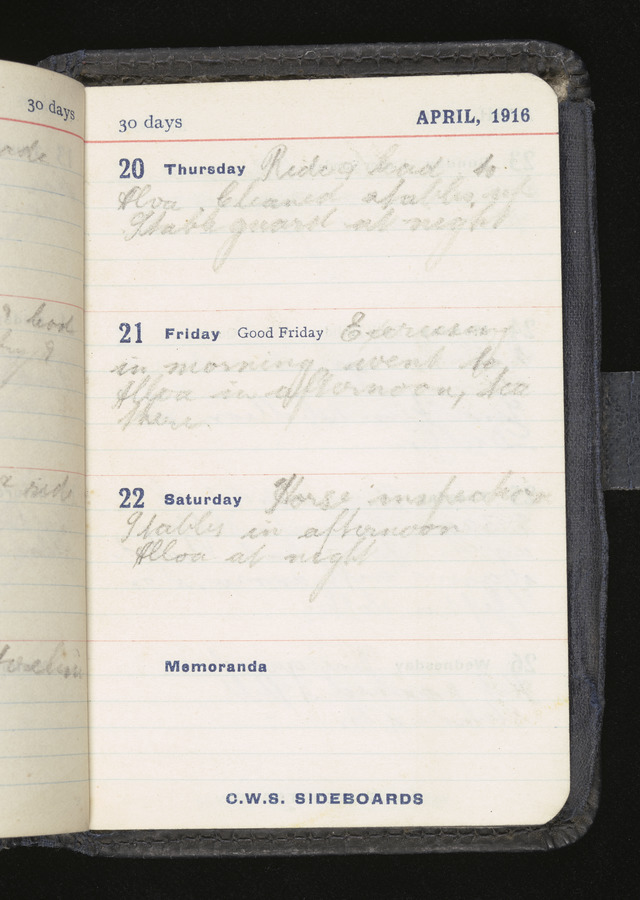 30 days
30 days
APRIL, 1916
20 Thursday Riding load to
Alloa Cleaned stables up
Stable guard at night
21 Friday Good Friday Exercising
in morning went to
Alloa in afternoon, tea
there.
22 Saturday Horse inspection
Stables in afternoon
Alloa at night
Memoranda
C.W.S. SIDEBOARDS